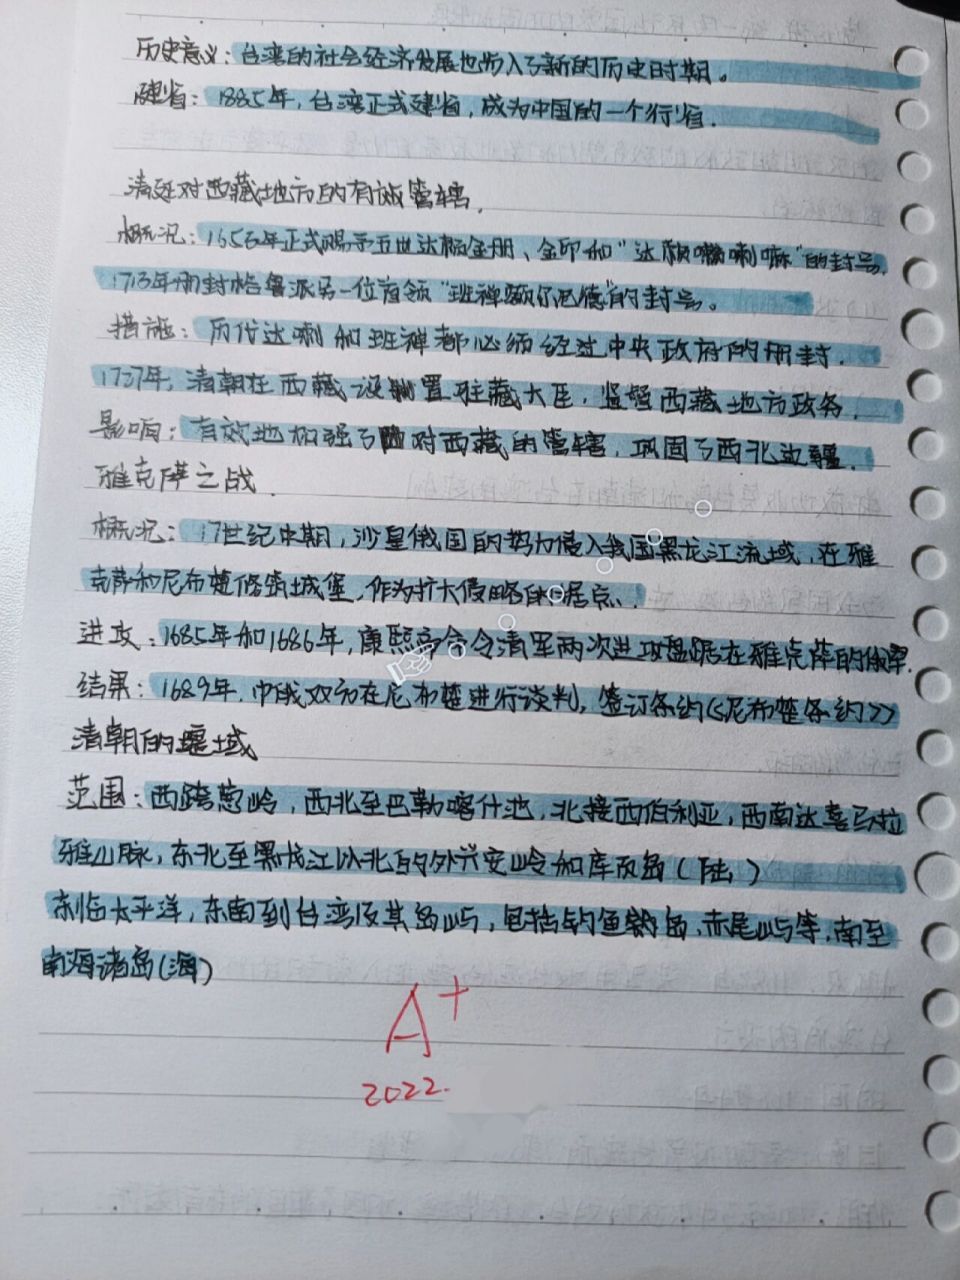 历史意义：台湾的社会经济发展也步入了新的历史时期。
建省：1885年，台湾正式建省，成为中国的一个行省.
清廷对西藏地方的有效管辖.
概况：1653年正式赐予五世达赖金册、金印和“达赖喇嘛”的封号.
1713年册封格鲁派另一位首领“班禅额尔尼德”的封号。
措施：历代达喇和班禅都必须经过中央政府的册封.
1727年，清朝在西藏设置驻藏大臣，监督西藏地方政务.
影响：有效地加强了对西藏的管辖，巩固了西北边疆.
雅克萨之战.
概况：17世纪中期，沙皇俄国的势力侵入我国黑龙江流域，在雅
克萨和尼布楚修筑城堡，作为扩大侵略的据点.
进攻：1685年和1686年，康熙帝命令清军两次进攻盘踞在雅克萨的俄军.
结果：1689年，中俄双方在尼布楚进行谈判，签订条约《尼布楚条约》
清朝的疆域
范围：西跨葱岭，西北至巴勒喀什池，北接西伯利亚，西南达喜马拉
雅山脉，东北至黑龙江以北的外兴安岭和库页岛（陆）
东临太平洋，东南到台湾及其岛屿，包括钓鱼岛，赤尾屿等，南至
南海诸岛（海）
A+
2022.